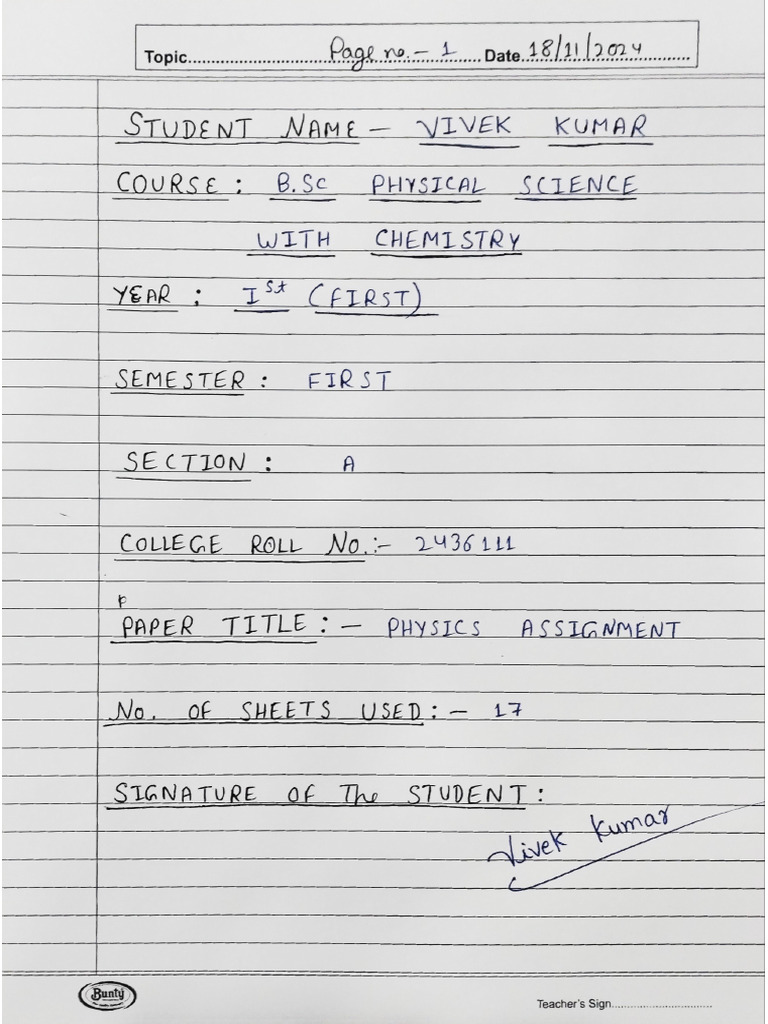 Topic.............................Page no.- 1......Date 18/11/2024
STUDENT NAME - VIVEK KUMAR
COURSE : B.Sc PHYSICAL SCIENCE
WITH CHEMISTRY
YEAR : Ist (FIRST)
SEMESTER : FIRST
SECTION : A
COLLEGE ROLL No.:- 2436111
P
PAPER TITLE : - PHYSICS ASSIGNMENT
No. OF SHEETS USED : - 17
SIGNATURE OF The STUDENT :
Vivek Kumar
Bunty
Teacher's Sign..............................